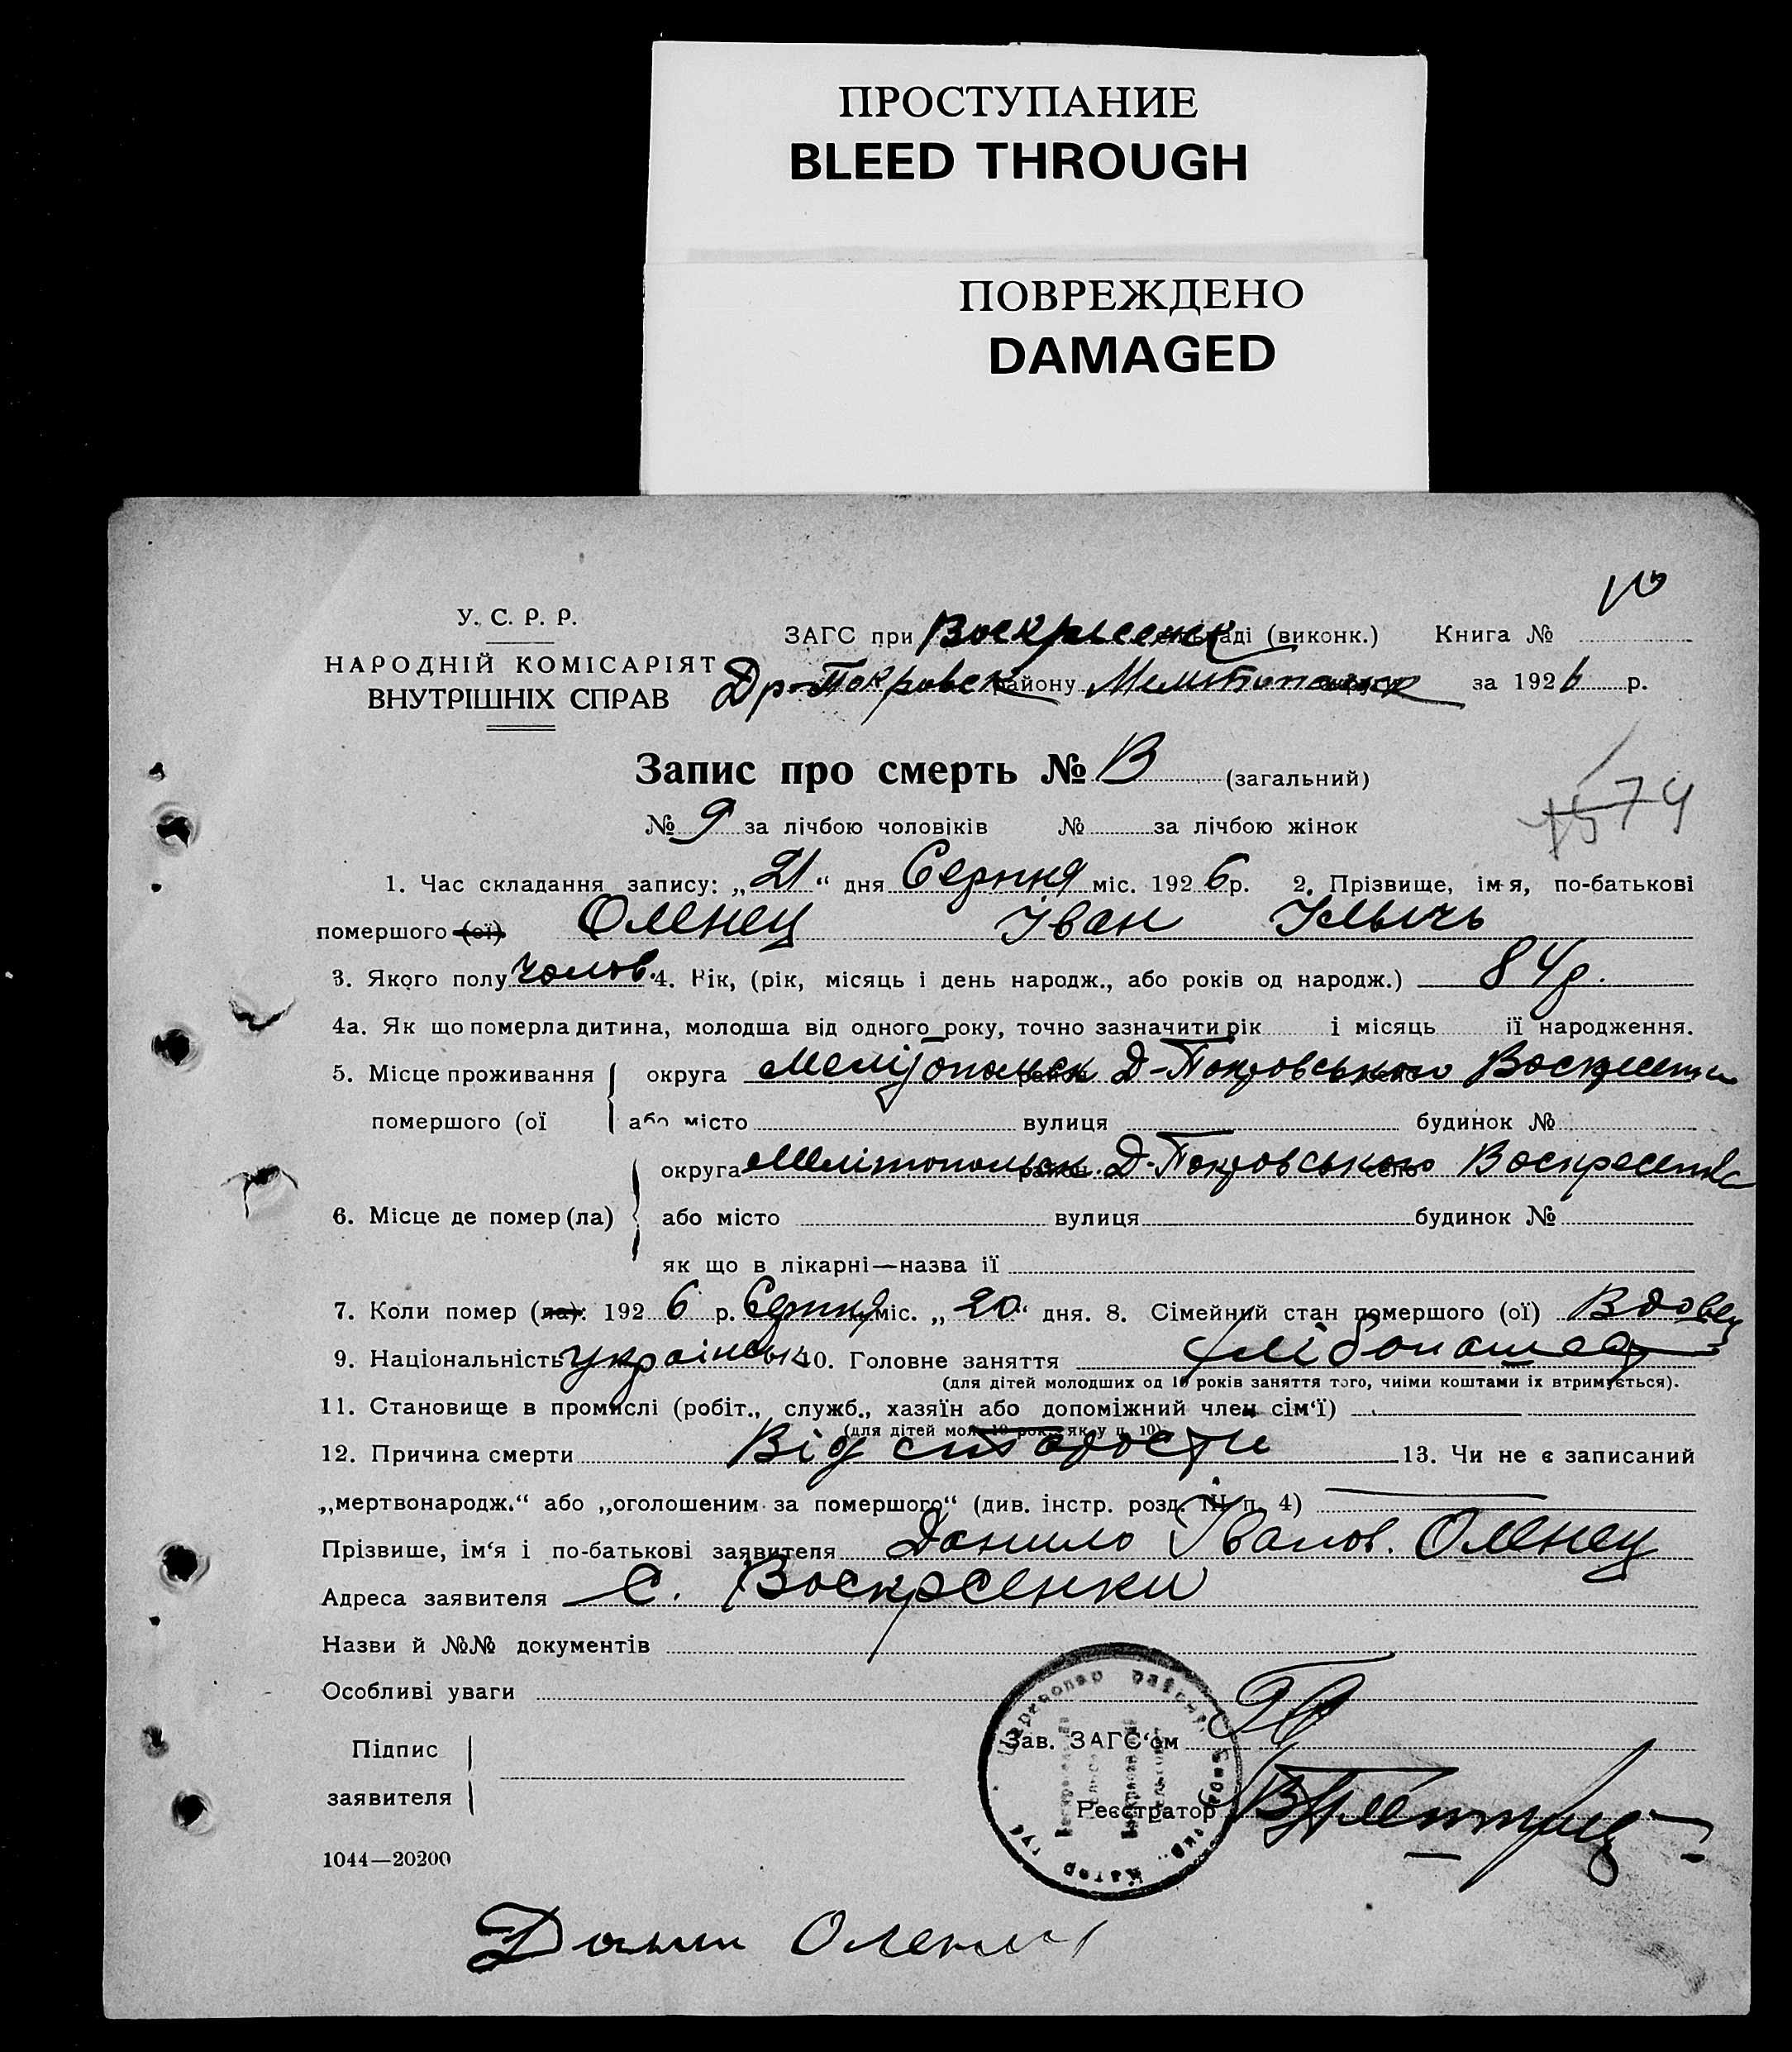 ПРОСТУПАНИЕ
BLEED THROUGH
ПОВРЕЖДЕНО
DAMAGED
У. С. Р. Р.
НАРОДНІЙ КОМІСАРІЯТ
ВНУТРІШНІХ СПРАВ
ЗАГС при Воскресенк сельраді (виконк.) Книга № 10
Др-Покровск району Мелитопольск округи за 1926 р.
Запис про смерть № В (загальний)
1574
№ 9 за лічбою чоловіків № за лічбою жінок
1. Час складання запису: „21“ дня Серпня міс. 1926 р. 2. Прізвище, ім'я, по-батькові
помершого (ої) Оленец Іван Ильичь
3. Якого полу чолов. 4. Рік, (рік, місяць і день народж., або років од народж.) 84 р.
4а. Як що померла дитина, молодша від одного року, точно зазначити рік і місяць її народження.
5. Місце проживання округа Мелітопольск район Д-Покровського село Воскресенки
помершого (ої або місто вулиця будинок №
округа Мелітопольск район Д-Покровського село Воскресенка
6. Місце де помер (ла) або місто вулиця будинок №
як що в лікарні—назва її
7. Коли помер (ла): 1926 р. Серпня міс. „20“ дня. 8. Сімейний стан помершого (ої) Вдовец
9. Національність українськ 10. Головне заняття хлібопашец
(для дітей молодших од 10 років заняття того, чиїми коштами їх втримується).
11. Становище в промислі (робіт., служб., хазяїн або допоміжний член сім'ї)
(для дітей мол. 10 рок. як у п. 10)
12. Причина смерти Від старости 13. Чи не є записаний
„мертвонародж.“ або „оголошеним за помершого“ (див. інстр. розд. III п. 4)
Прізвище, ім'я і по-батькові заявителя Данило Іванов. Оленец
Адреса заявителя С. Воскрсенки
Назви й №№ документів
Особливі уваги
Підпис
заявителя
Зав. ЗАГС'ом
Реєстратор
1044—20200